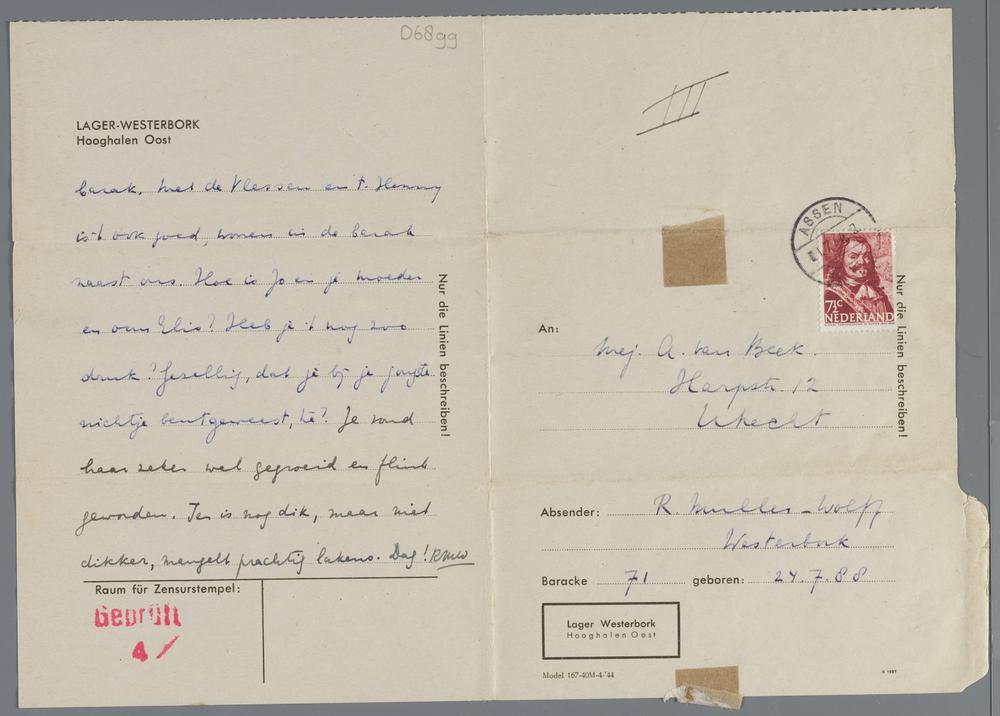 D68gg
LAGER-WESTERBORK
Hooghalen Oost
barak. Met de Vlessen en t. Henny
is 't ook goed, wonen in de barak
naast ons. Hoe is Jo en je moeder
en oom Elio? Heb je 't nog zoo
druk? Gezellig, dat je bij je jongste
nichtje bent geweest, hè? Je vond
haar zeker wel gegroeid en flink
geworden. Jes is nog dik, maar niet
dikker, mangelt prachtig lakens. Dag! RMW
Nur die Linien beschreiben!
Raum für Zensurstempel:
Geprüft
4
III
ASSEN
7½c
NEDERLAND
Nur die Linien beschreiben!
An:
Mej. A. van Beek.
Harpstr. 12
Utrecht
Absender: R. Muller-Wolff
Westerbork
Baracke 71 geboren: 24.7.88
Lager Westerbork
Hooghalen Oost
Model 167-40M-4-'44